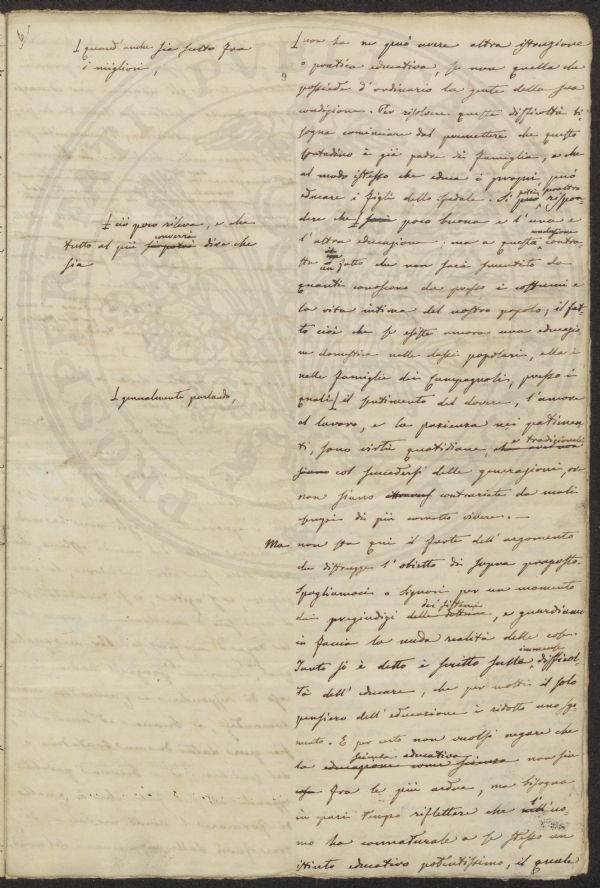 6/
⌊ quand'anche sia scelto fra
i migliori,
⌊ ciò poco rileva, e che
converrà
tutto al più si potrà dire che
sia
⌊ generalmente parlando,
⌊ non ha ne può avere altra istruzione
o pratica educativa, se non quella che
possiede d'ordinario la gente della sua
condizione. Per risolvere questa difficoltà bi
sogna cominciare dal premettere che questo
contadino è già padre di famiglia, e che
al modo istesso che educa i propri, può
educare i figli dello spedale. Si può rispon
dere che ⌊ poco buona e l'una e
l'altra educazione; ma a questa
sta un fatto che non sarà smentito da
quanti conoscono da presso i costumi e
la vita intima del nostro popolo; il fat
to cioè che se esiste ancora una educazio
ne domestica nelle classi popolari, ella è
nelle famiglie dei Campagnoli, presso i
quali ⌊ il sentimento del dovere, l'amore
al lavoro, e la pazienza nei patimen
ti, sono virtù quotidiane, e tradizionali
col succedersi delle generazioni, ove
non siano contrariate da mali
esempi di più corrotto vivere. —
Ma non sta qui il forte dell'argomento
che distrugge l'obietto di sopra proposto.
Spogliamoci o Signori per un momento
dei sistemi
dei pregiudizi delle dottrine, e guardiamo
in faccia la nuda realtà delle cose.
immensa
Tanto si è detto e scritto sulla difficol
tà dell'educare, che per molti il solo
pensiero dell'educazione è ridotto uno sgo
mento. E per certo non vuolsi negare che
scienza educativa
la educazione come scienza non sia
fra le più ardue, ma bisogna
in pari tempo riflettere che l'uo
mo ha connaturale a se stesso un
istinto educativo potentissimo, il quale